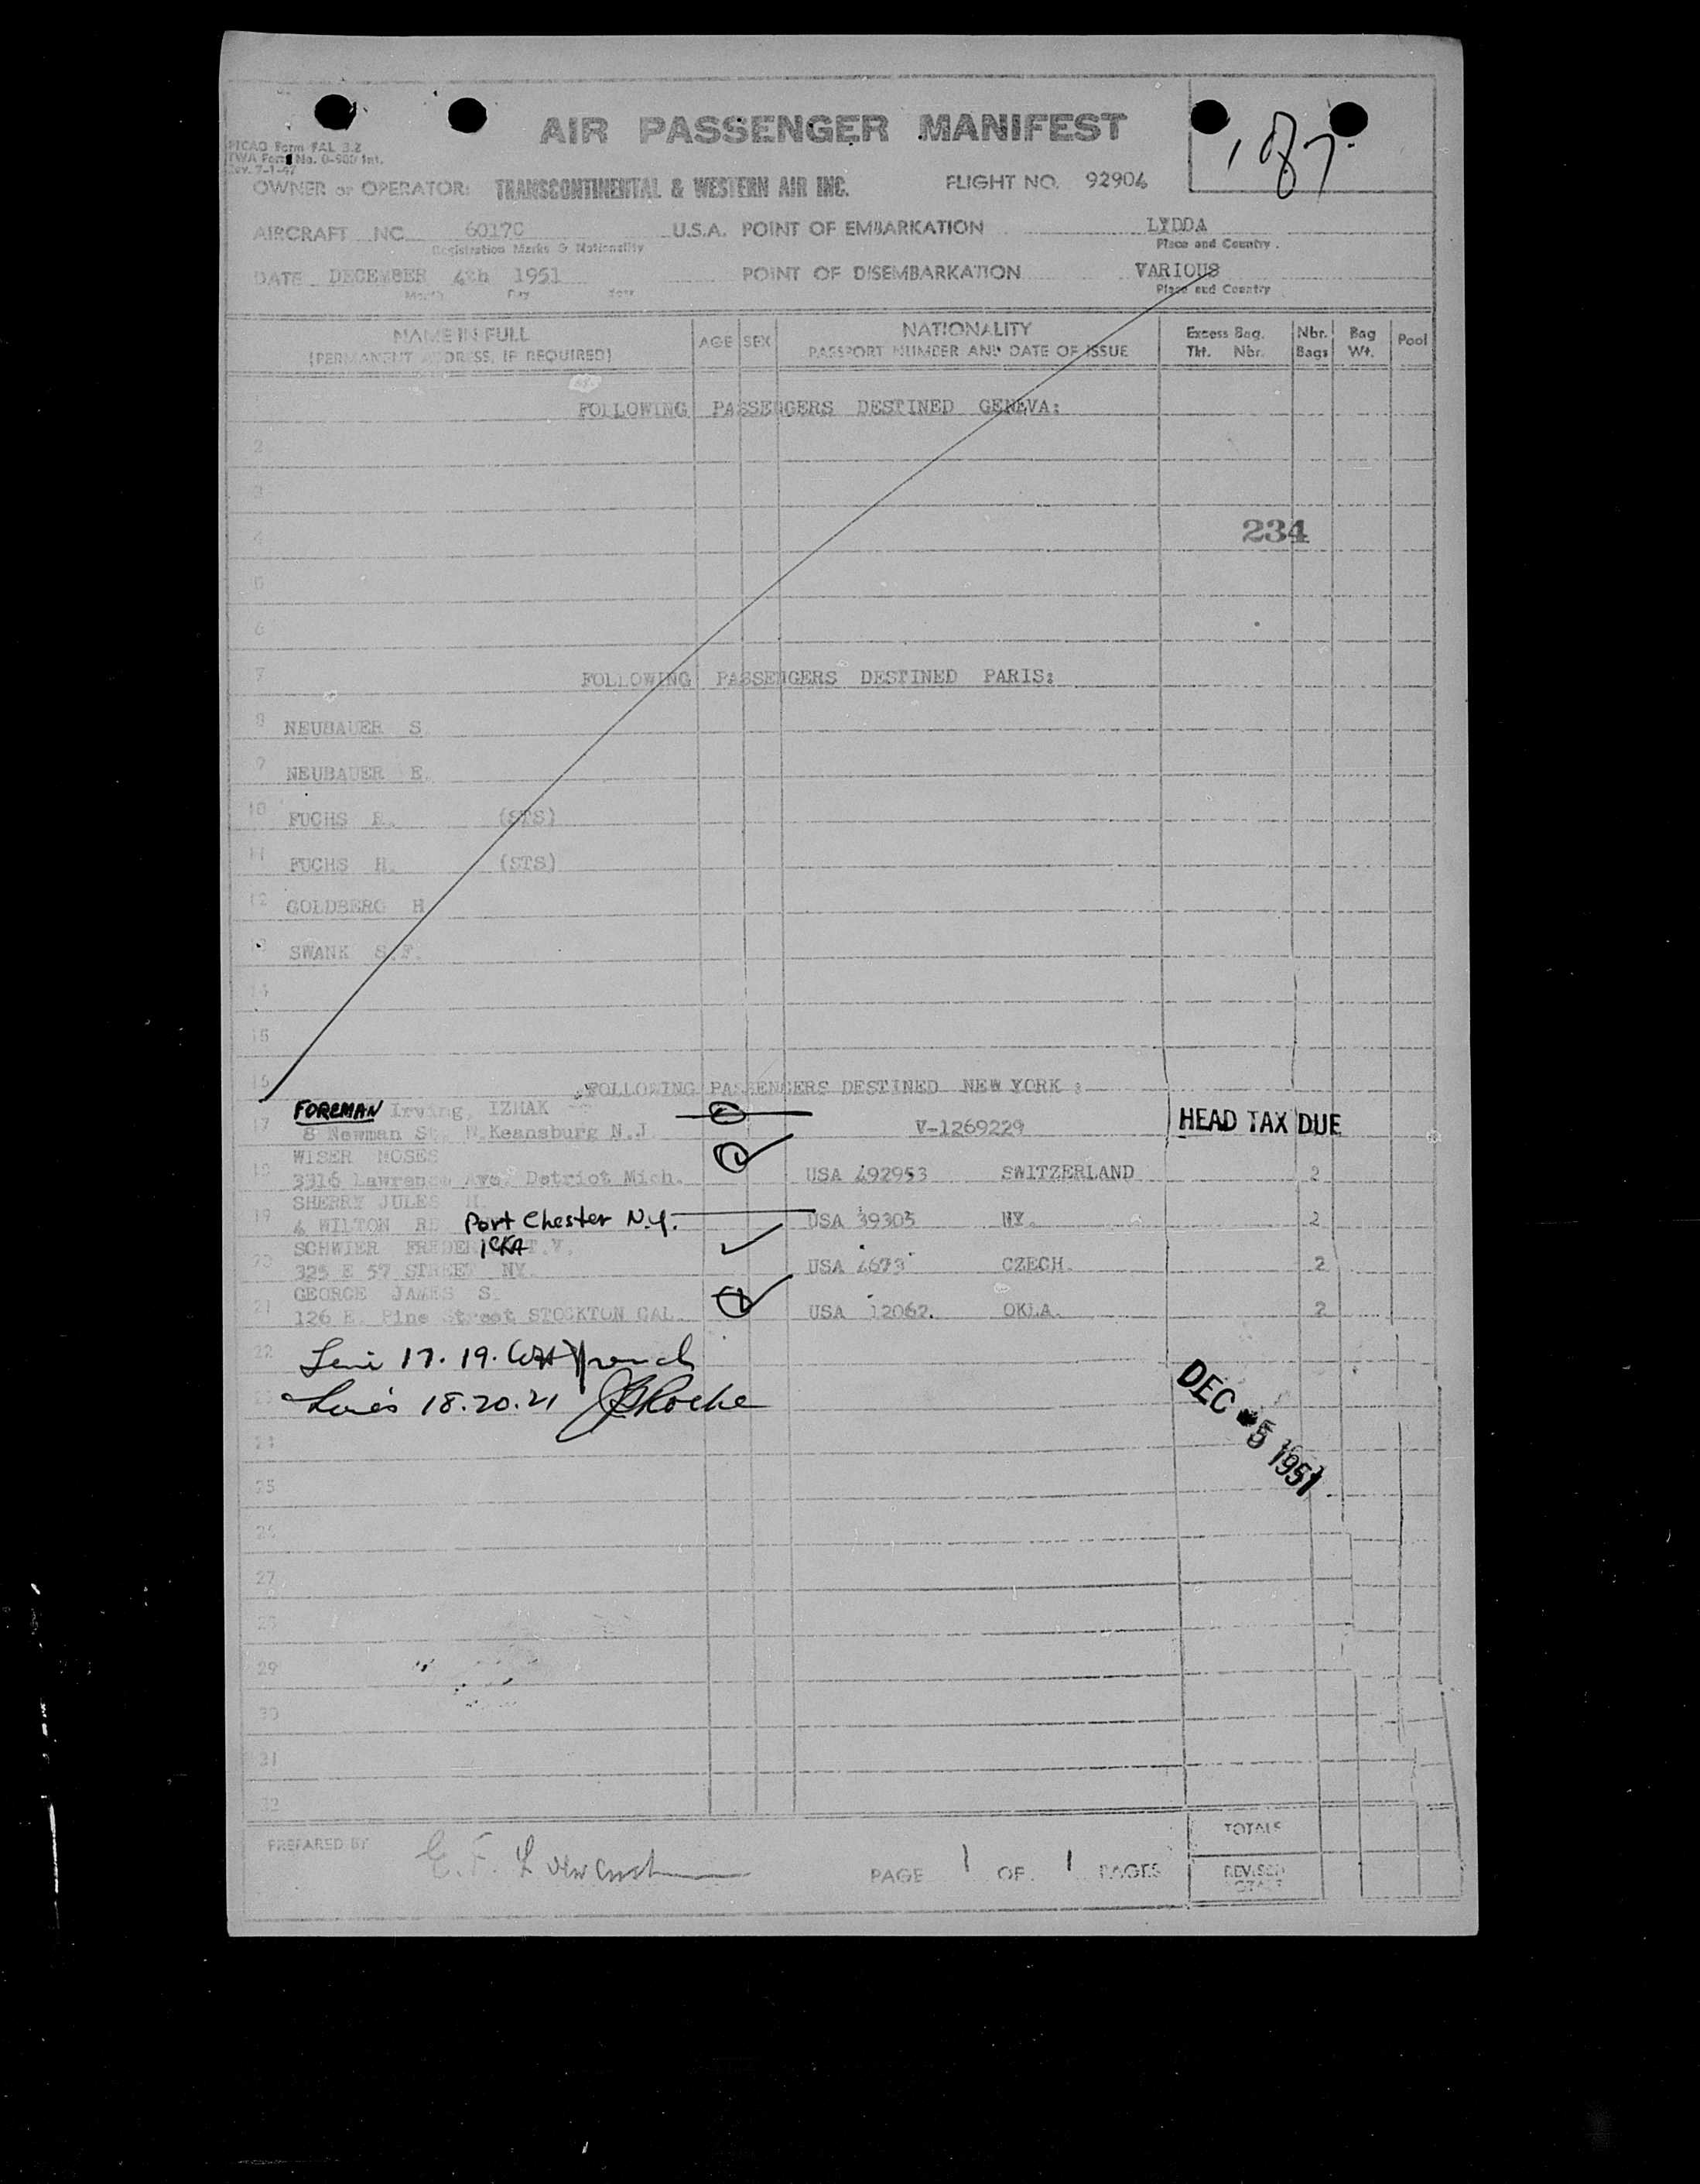 AIR PASSENGER MANIFEST
PICAO Form FAL 3.2
TWA Form No. 0-500 Int.
Rev. 7-1-47
1 of 7
OWNER or OPERATOR: TRANSCONTINENTAL & WESTERN AIR INC. FLIGHT NO. 92904
AIRCRAFT NO. 6017C U.S.A. POINT OF EMBARKATION LYDDA
Registration Marks & Nationality Place and Country
DATE DECEMBER 4th 1951 POINT OF DISEMBARKATION VARIOUS
Month Day Year Place and Country
NAME IN FULL AGE SEX NATIONALITY Excess Bag. Nbr. Bag Pool
(PERMANENT ADDRESS, IF REQUIRED) PASSPORT NUMBER AND DATE OF ISSUE Tkt. Nbr. Bags Wt.
FOLLOWING PASSENGERS DESTINED GENEVA:
2
3
234
4
5
6
7 FOLLOWING PASSENGERS DESTINED PARIS:
8 NEUBAUER S.
9 NEUBAUER E.
10 FUCHS R. (STS)
11 FUCHS H. (STS)
12 GOLDBERG H
13 SWANK S.F.
14
15
16 FOLLOWING PASSENGERS DESTINED NEW YORK :
FOREMAN Irving, IZHAK
17 8 Newman St. N.Keansburg N.J. V-1269229 HEAD TAX DUE
WISER MOSES
18 3316 Lawrence Ave. Detriot Mich. USA 492953 SWITZERLAND 2
SHERRY JULES H.
19 4 WILTON RD Port Chester N.Y. USA 39305 NY. 2
SCHWIER FREDERICKA T.V.
20 325 E 57 STREET NY. USA 4673 CZECH. 2
GEORGE JAMES S.
21 126 E. Pine Street STOCKTON CAL. USA 12062. OKLA. 2
22 Line 17. 19.
23 Lines 18.20.21 Roche
DEC -5 1951
24
25
26
27
28
29
30
31
32
PREPARED BY E. F. PAGE 1 OF 1 PAGES TOTALS
REVISED TOTALS